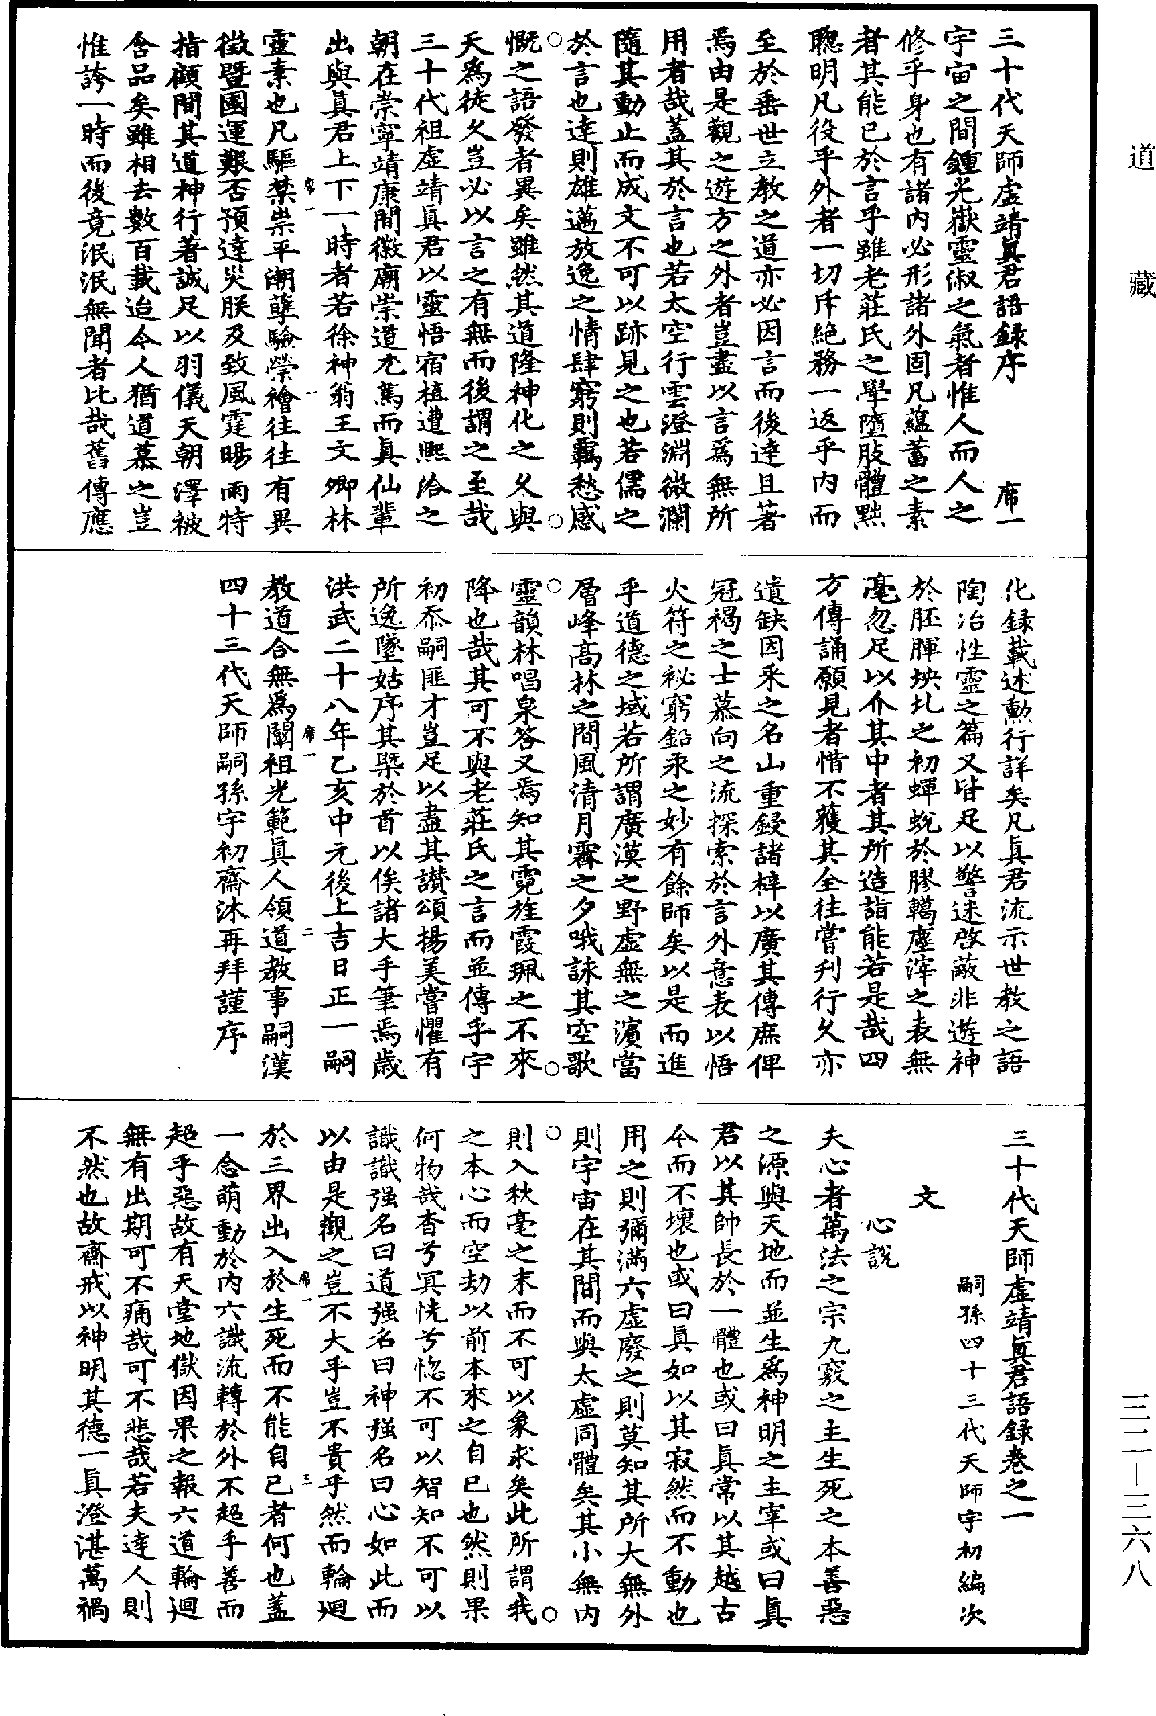 道藏
三十代天師虛靖眞君語錄序
席一
宇宙之間鍾光嶽靈淑之氣者惟人而人之
修乎身也有諸內必形諸外固凡蘊蓄之素
者其能已於言乎雖老莊氏之學墮肢體黜
聰明凡役乎外者一切斥絕務一返乎內而
至於垂世立教之道亦必因言而後達且著
焉由是觀之遊方之外者豈盡以言爲無所
用者哉蓋其於言也若太空行雲澄淵微瀾
隨其動止而成文不可以跡見之也若儒之
於言也達則雄邁放逸之情肆窮則羈愁感
慨之語發者異矣雖然其道隆神化之久與
天爲徒久豈必以言之有無而後謂之至哉
三十代祖虛靖眞君以靈悟宿植遭熙洽之
朝在崇寧靖康間徽廟崇道尤篤而眞仙輩
出與眞君上下一時者若徐神翁王文卿林
靈素也凡驅禁祟平潮孽驗禜禬往往有異
席一
一
徵暨國運艱否預達災朕及致風霆暘雨特
指顧間其道神行著誠足以羽儀天朝澤被
含品矣雖相去數百載迨今人猶道慕之豈
惟誇一時而後竟泯泯無聞者比哉舊傳應
化錄載述勳行詳矣凡眞君流示世教之語
陶冶性靈之篇又皆足以警迷啓蔽非遊神
於胚腪坱圠之初蟬蛻於膠轕塵滓之表無
毫忽足以介其中者其所造詣能若是哉四
方傳誦願見者惜不獲其全往嘗刋行久亦
遺缺因采之名山重鋟諸梓以廣其傳庶俾
冠褐之士慕向之流探索於言外意表以悟
火符之祕窮鉛汞之妙有餘師矣以是而進
乎道德之域若所謂廣漠之野虛無之濵當
層峰高林之間風清月霽之夕哦詠其空歌
靈韻林唱泉答又焉知其霓旌霞珮之不來
降也哉其可不與老莊氏之言而並傳乎宇
初忝嗣匪才豈足以盡其讚頌揚美嘗懼有
所逸墜姑序其槩於首以俟諸大手筆焉歲
洪武二十八年乙亥中元後上吉日正一嗣
教道合無爲闡祖光範眞人領道教事嗣漢
席一
二
四十三代天師嗣孫宇初齋沐再拜謹序
三十代天師虛靖眞君語錄卷之一
嗣孫四十三代天師宇初編次
文
心說
夫心者萬法之宗九竅之主生死之本善惡
之源與天地而並生爲神明之主宰或曰眞
君以其帥長於一體也或曰眞常以其越古
今而不壞也或曰眞如以其寂然而不動也
用之則彌滿六虛廢之則莫知其所大無外
則宇宙在其間而與太虛同體矣其小無內
則入秋毫之末而不可以象求矣此所謂我
之本心而空劫以前本來之自己也然則果
何物哉杳兮冥恍兮惚不可以智知不可以
識識强名曰道强名曰神强名曰心如此而
以由是觀之豈不大乎豈不貴乎然而輪迴
於三界出入於生死而不能自己者何也蓋
席一
三
一念萌動於內六識流轉於外不超乎善而
超乎惡故有天堂地獄因果之報六道輪迴
無有出期可不痛哉可不悲哉若夫達人則
不然也故齋戒以神明其德一眞澄湛萬禍
三二—三六八